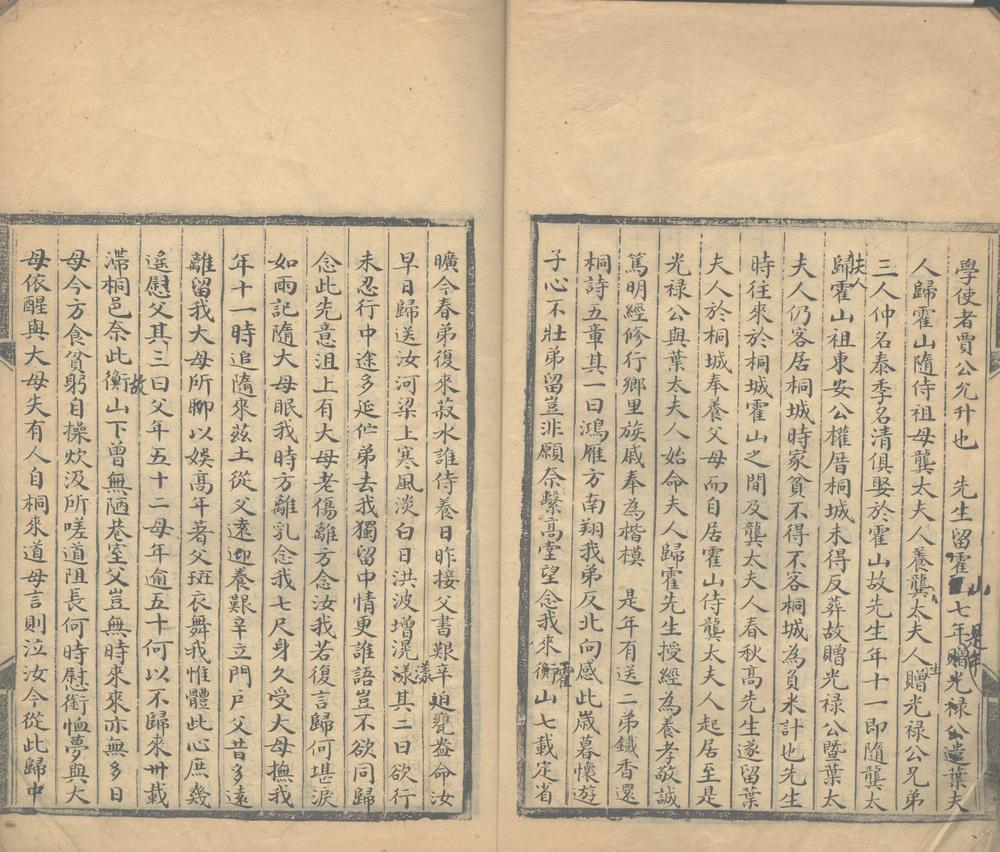 學使者賈公允升也　先生留霍山七年是年贈光禄公遣葉夫
人歸霍山隨侍祖母龔太夫人養龔太夫人生贈光禄公兄弟
三人仲名泰季名清俱娶於霍山故先生年十一即隨龔太
夫人歸霍山祖東安公權厝桐城未得反葬故贈光禄公暨葉太
夫人仍客居桐城時家貧不得不客桐城為負米計也先生
時往來於桐城霍山之間及龔太夫人春秋高先生遂留葉
夫人於桐城奉養父母而自居霍山侍龔太夫人起居至是
光禄公與葉太夫人始命夫人歸霍先生授經為養孝敬誠
篤明經修行鄉里族戚奉為楷模　是年有送二弟鐵香還
桐詩五章其一曰鴻雁方南翔我弟反北向感此歲暮懷遊
子心不壯弟留豈非願奈繫高堂望念我來衡霍山七載定省
曠今春弟復來菽水誰侍養日昨接父書艱辛迫甕盎命汝
早日歸送汝河梁上寒風淡白日洪波增滉漾其二曰欲行
未忍行中途多延伫弟去我獨留中情更誰語豈不欲同歸
念此先意沮上有大母老傷離方念汝我若復言歸何堪淚
如雨記隨大母眠我時方離乳念我七尺身久受大母撫我
年十一時追隨來茲土從父遠迎養艱辛立門戶父昔多遠
離留我大母所聊以娛高年著父斑衣舞我惟體此心庶幾
遥慰父其三曰父年五十二母年逾五十何以不歸來卅載
滯桐邑奈此衡故山下曾無陋巷室父豈無時來來亦無多日
母今方食貧躬自操炊汲所嗟道阻長何時慰銜恤夢與大
母依醒與大母失有人自桐來道母言則泣汝今從此歸中